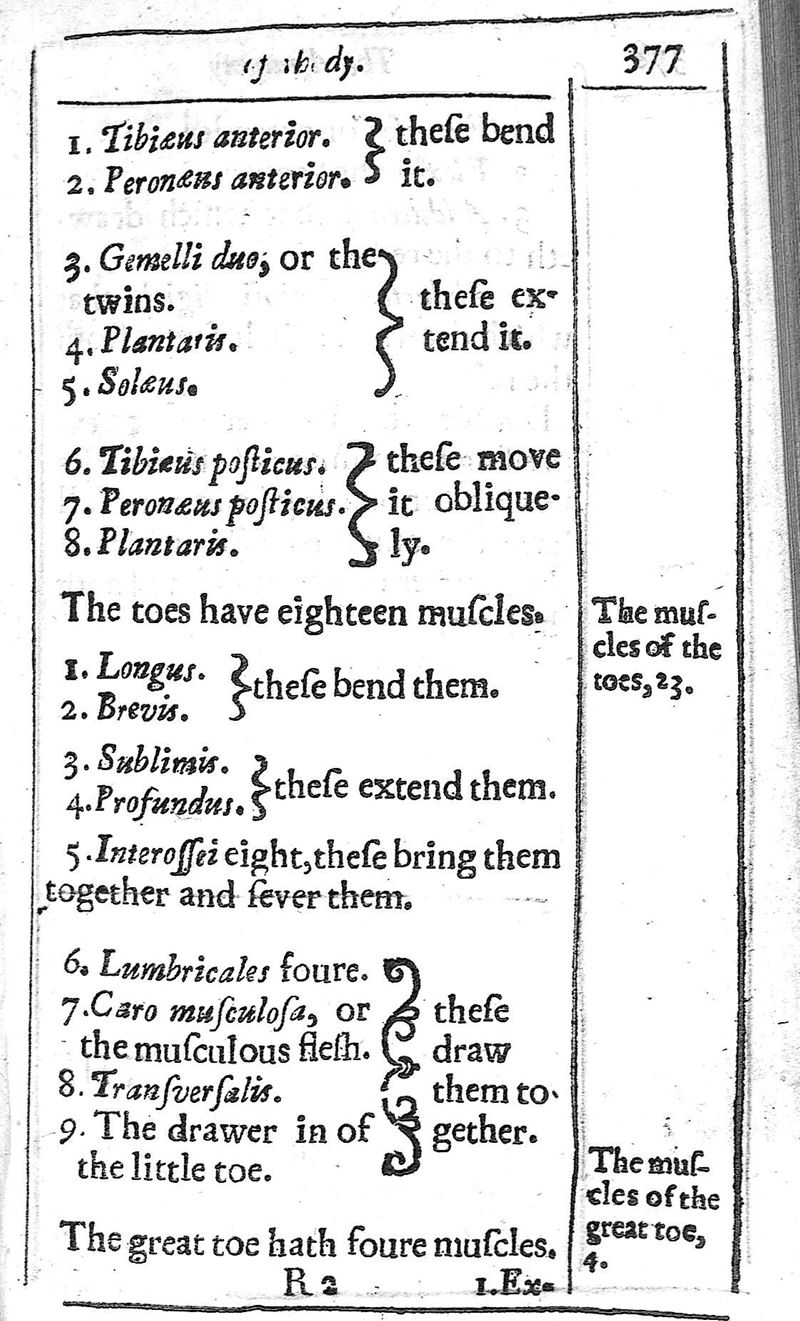 377
1. Tibiæus anterior. } theſe bend
2. Peronæus anterior. } it.
3. Gemelli duo, or the
twins. } theſe ex-
4. Plantaris. } tend it.
5. Solæus.
6. Tibiæus poſticus. } theſe move
7. Peronæus poſticus. } it oblique-
8. Plantaris. } ly.
The toes have eighteen muſcles.
The muſ-
cles of the
toes, 23.
1. Longus.
2. Brevis. } theſe bend them.
3. Sublimis.
4. Profundus. } theſe extend them.
5. Interoſſei eight, theſe bring them
together and ſever them.
6. Lumbricales foure.
7. Caro muſculoſa, or } theſe
the muſculous fleſh. } draw
8. Tranſverſalis. } them to-
9. The drawer in of } gether.
the little toe.
The great toe hath foure muſcles.
The muſ-
cles of the
great toe,
4.
R 2 1. Ex-